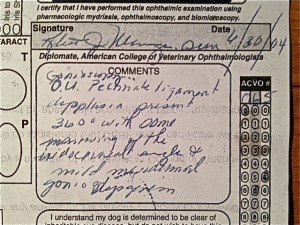 I certify that I have performed this ophthalmic examination using
pharmacologic mydriasis, ophthalmoscopy, and biomicroscopy.
Signature
Date
6/30/04
Diplomate, American College of Veterinary Ophthalmologists
ATARACT
COMMENTS
ACVO #
Gonioscopy
O.U. Pectinate ligament
dysplasia present
360° with some
narrowing of the
iridocorneal angle &
mild
goniodysgenesis
T
P
I understand my dog is determined to be clear of